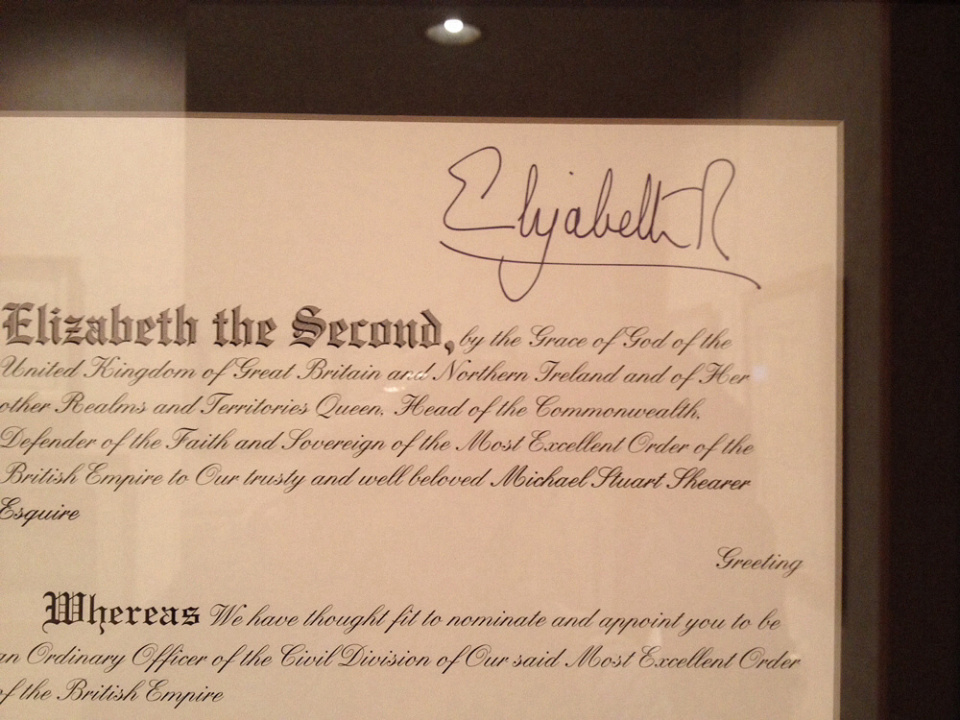 Elizabeth R
Elizabeth the Second, by the Grace of God of the
United Kingdom of Great Britain and Northern Ireland and of Her
other Realms and Territories Queen, Head of the Commonwealth,
Defender of the Faith and Sovereign of the Most Excellent Order of the
British Empire to Our trusty and well beloved Michael Stuart Shearer
Esquire
Greeting
Whereas We have thought fit to nominate and appoint you to be
an Ordinary Officer of the Civil Division of Our said Most Excellent Order
of the British Empire